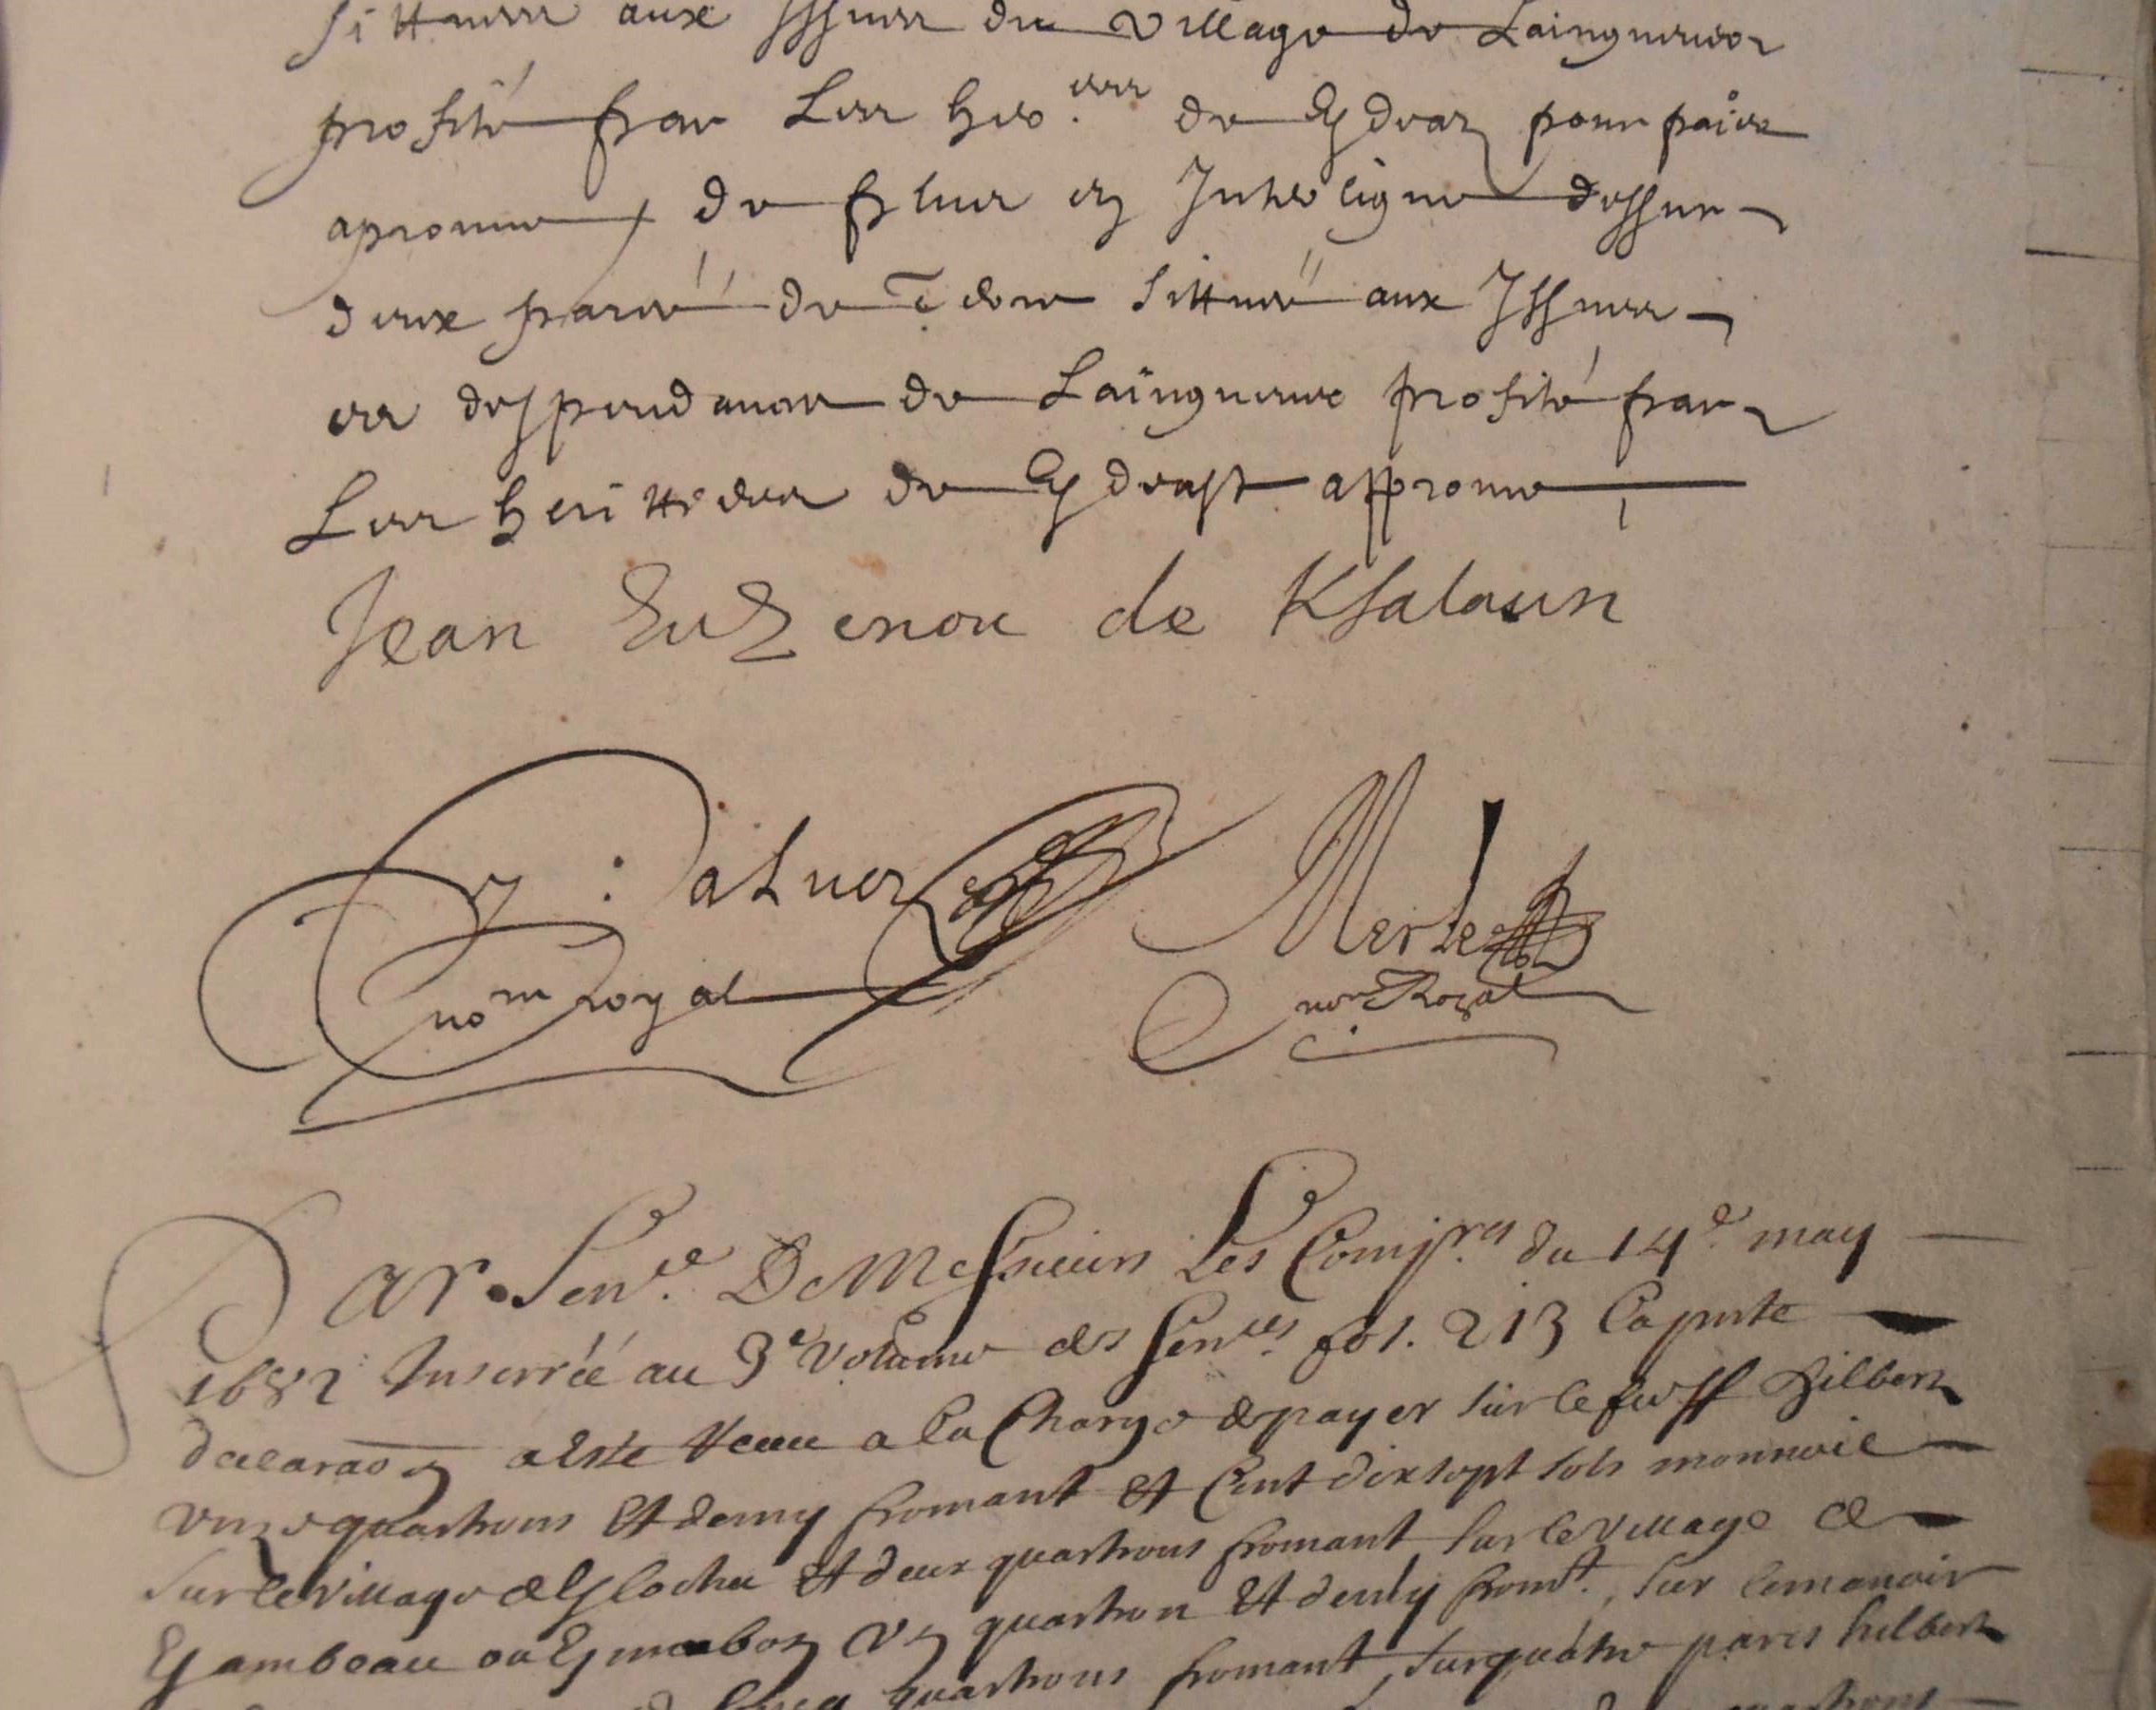 sittuees aux Issues du village de Lainguenec
profité par Les her.ers de Kdrean pour paroir
aprouve, de plus en Interligne dessus
deux parcé de terre sittué aux Issues
et despendance de Lainguenec profité par
Les herittiers de Kdreast approuve
Jean Euzenou de Ksalaun
Y: Dahuer
no.re royal
Merle
no.re Royal
Par Sen.ce De Messieurs Les Comis.res du 14.e may
1682 Inserrée au 3.e volume des Sen.ces fol. 213 La pnte
declaraon a Este Receue a la Charge de payer sur le fieff hilbert
unze quartrons Et demy fromant Et Cent dix sept sols monnoie
sur le village de Klochu Et deux quartrons fromant sur le village de
Kambeau ou un quartron Et demy from.t, sur le manoir
cinq quartrons fromant, sur quatre parcs hilbert
quartrons